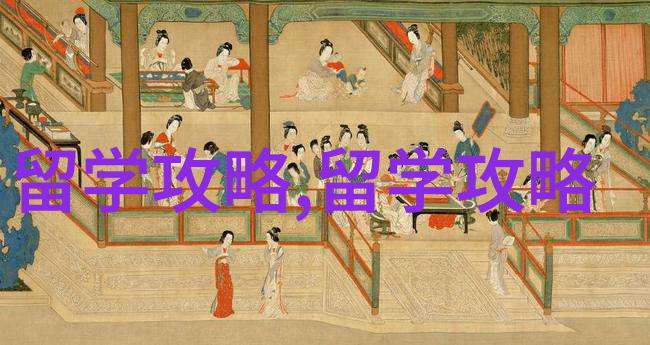 留学攻略,留学攻略